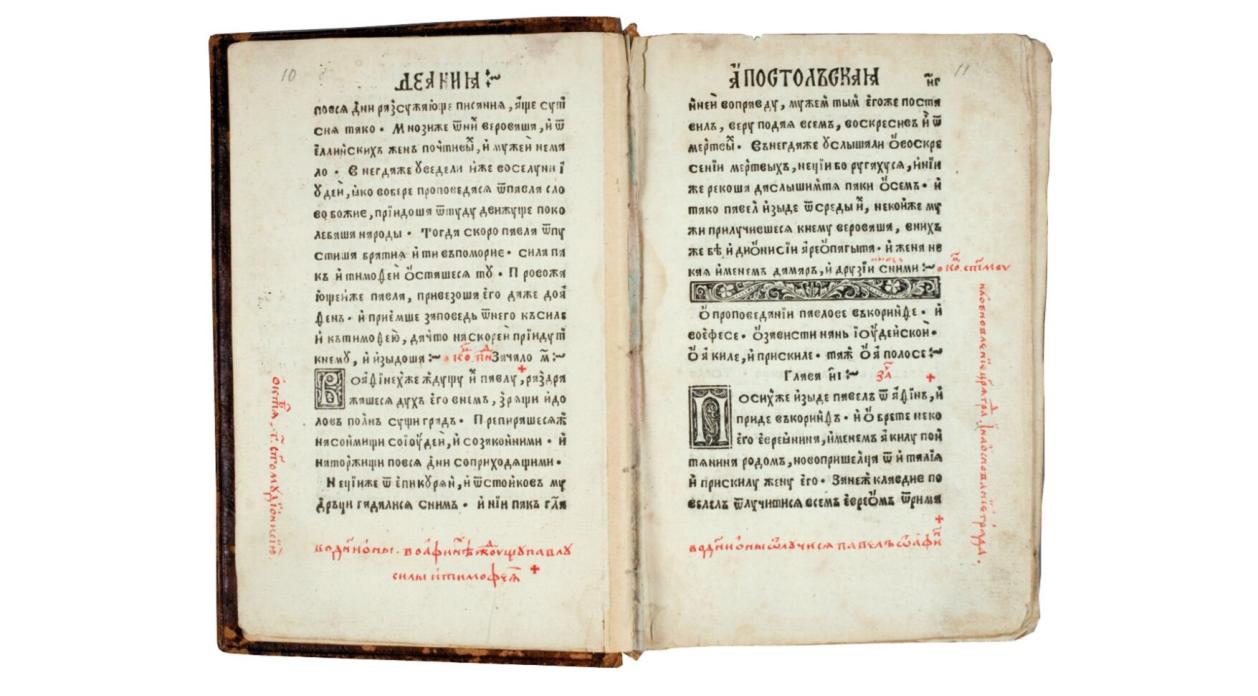 10
ДЕАНИꙖ
повсѧ дни разсужающе писаниꙗ, аще сут
сиꙗ тако. Мнозиже ѿ ни веровашꙗ, и ѿ
еллинскихъ женъ почтивы, и мужей нема
ло. Внегдаже уведели иже воселуни і
удеи, ꙗко вовере проповедасѧ ѿ павла сло
во божие, приидоша ѿтуду движуще поко
лебаша народы. Тогда скоро павла ѿпу
стиша братиꙗ ити въпоморие. сила па
къ и тимоѳеи ѡсташесѧ ту. Провожа
ющеиже павла, привезоша его даже доа
ѳенъ. и приемше заповедь ѿ него къ силе
и кътимоѳею, дачто наскореи приидут
кнему, и изыдоша Зачало м҃
Воаѳинехже ждущу и павлу, раздра
жашесѧ духъ его внемъ, зрѧщи идо
ловъ полнъ сущи градъ. Препирашесѧж
насонмищи соіоудеи, и созаконними. и
наторжищи повсѧ дни соприходѧщими.
Нецииже ѿ епикуреи, и ѿ стоиковъ му
дрьци гадалисѧ снимъ. и нии пакъ гл҃а
во дн҃и ѡны. во аѳинѣ ждꙋщꙋ павлꙋ
силы и тимоѳеꙗ
11
АПОСТОЛЬСКАꙖ
н҃г
ниеи воправду, мужем тым егоже поста
вилъ, веру подаꙗ всемъ, воскресивъ и ѿ
мертвы. Въ негдаже услышали о воскре
сении мертвыхъ, нецыи бо ругахусѧ, инии
же рекоша даслышимтѧ паки о семъ. и
тако павел изыде ѿ среды и, некоиже му
жи прилучившесѧ кнему вероваша, внихъ
же бѣ и дионисіи ареопагыта. и жена не
каꙗ именемъ дамаръ, и друзіи сними
О проповедании павлове въкоринѳе. и
воефесе. О зависти нань іоудейской.
О акиле, и прискиле. таж о аполосе
Глава н҃і за҃
Посихже изыде павелъ ѿ аѳинъ, и
приде въкоринѳъ. и обрете неко
его евреѧнина, именемъ акилу пон
тѧнина родомъ, новопришелца ѿ италиꙗ
и прискилу жену его. Занеж клавдие по
велелъ ѿлучитисѧ всемъ евреомъ ѿ рима
во дн҃и ѡны ѿлучисѧ павелъ ѿ аѳин